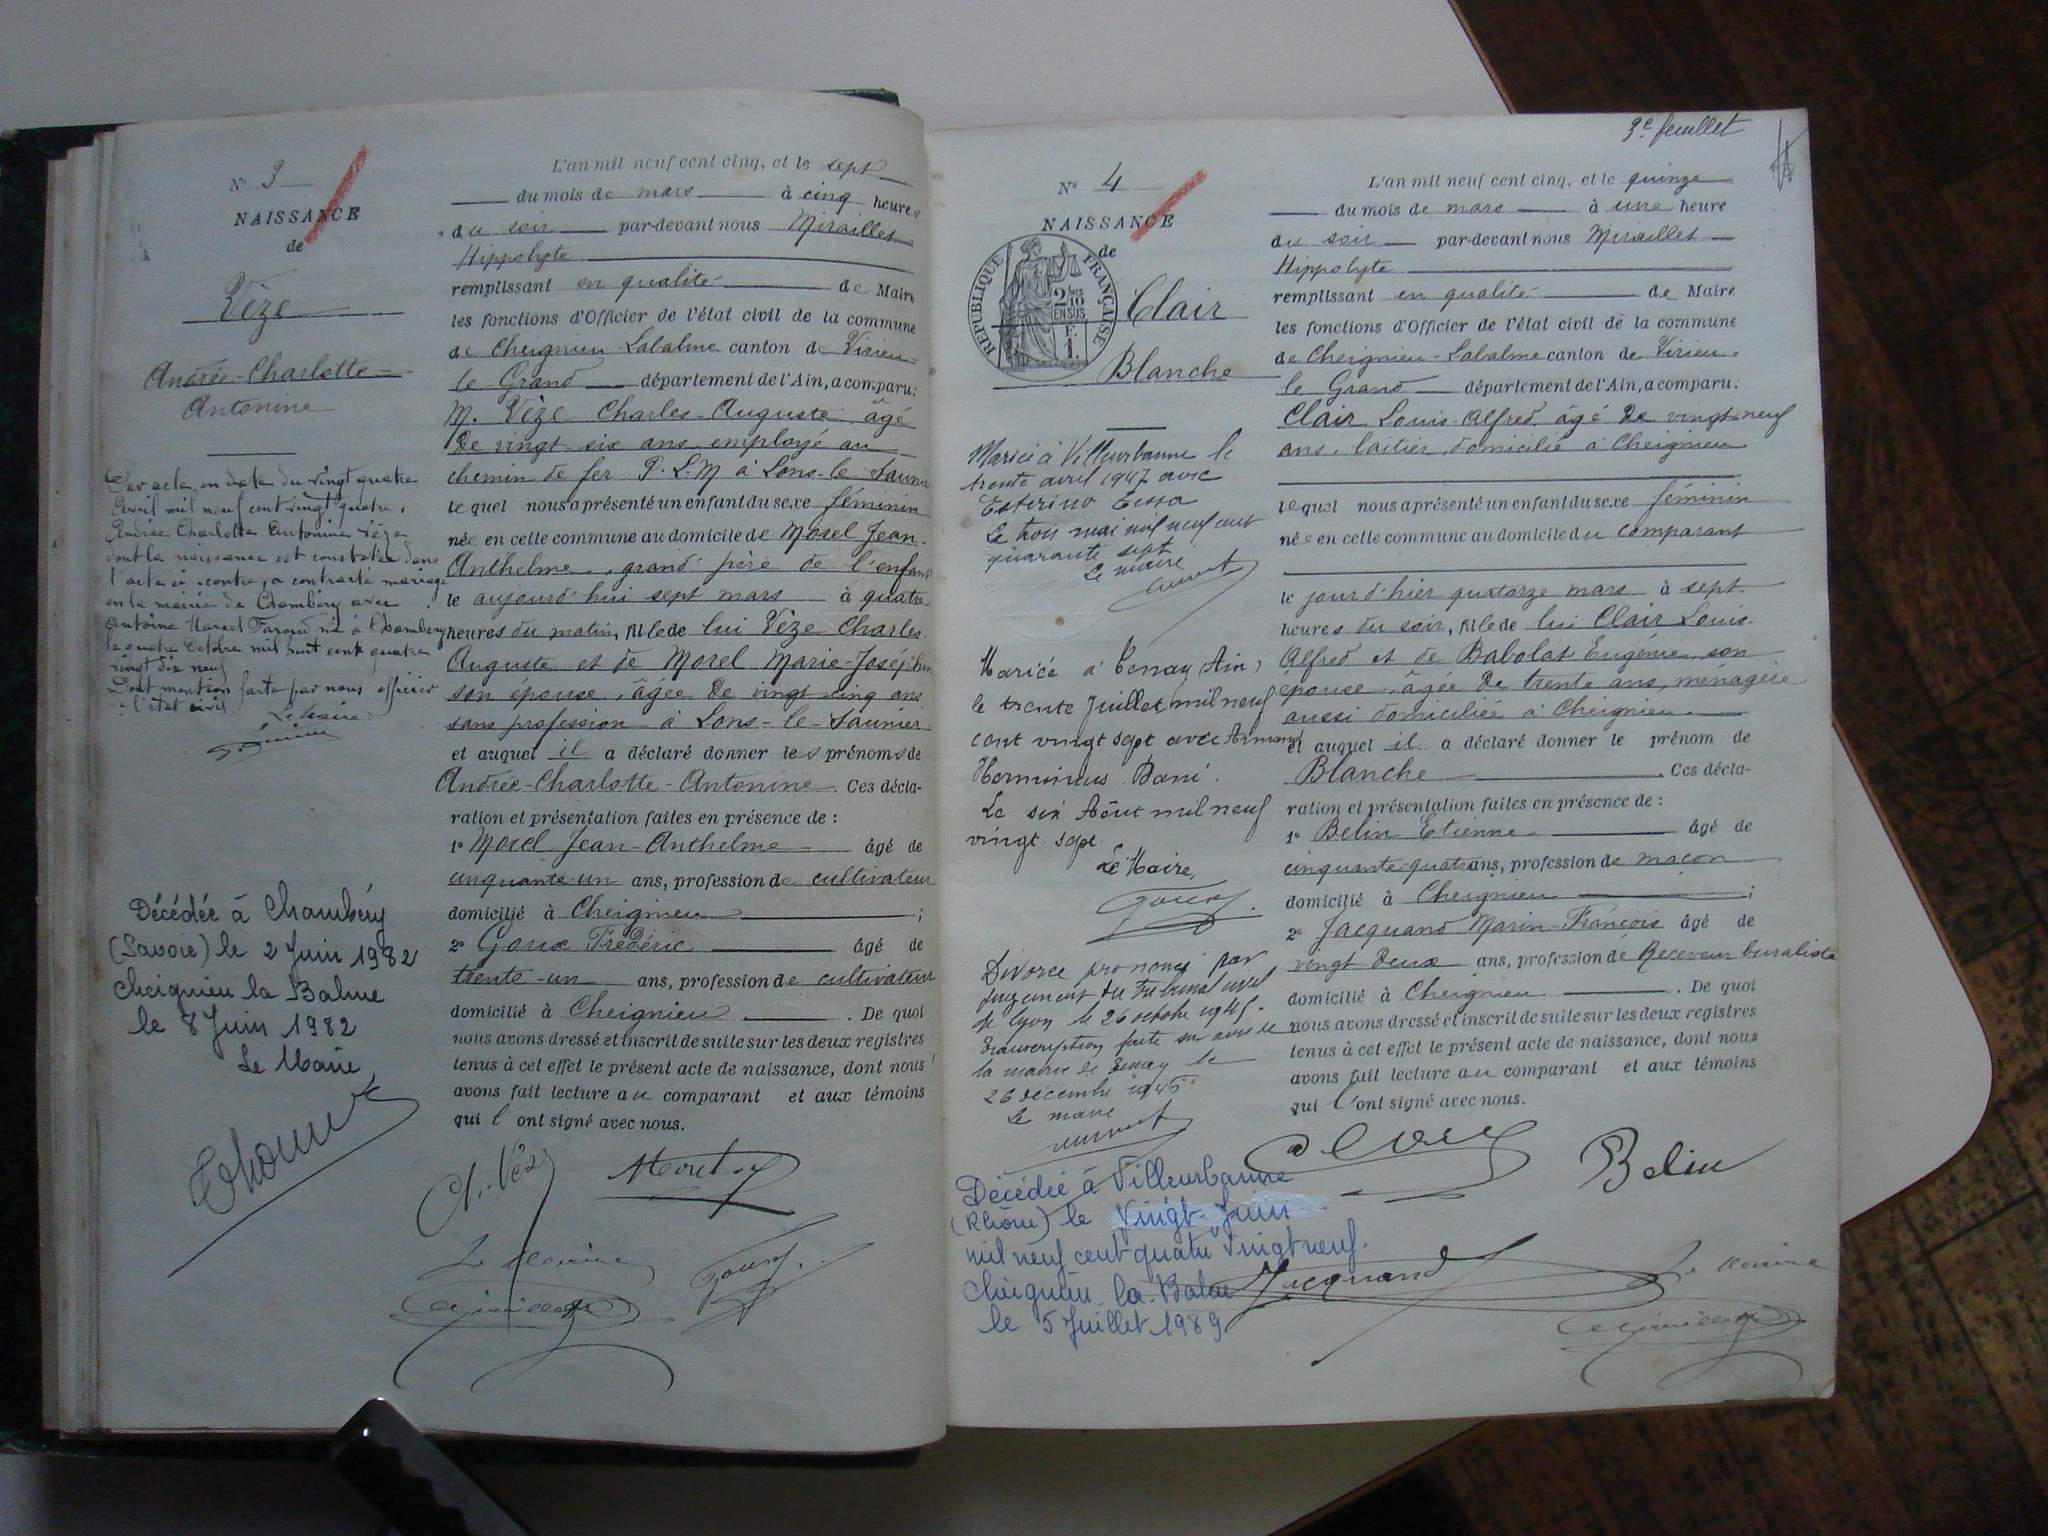 N° 3
NAISSANCE
de
Vèze
Andrée-Charlotte-
Antonine
Par acte en date du vingt quatre
Avril mil neuf cent vingt quatre,
Andrée Charlotte Antonine Vèze
dont la naissance est constatée dans
l'acte ci-contre, a contracté mariage
en la mairie de Chambéry avec
Antoine Marcel né à Chambéry
le quatre Octobre mil huit cent quatre
vingt dix neuf
Dont mention faite par nous officier
de l'état civil
Le Maire
Décédée à Chambéry
(Savoie) le 2 Juin 1982
Cheignieu la Balme
le 8 Juin 1982
Le Maire
L'an mil neuf cent cinq, et le sept
du mois de mars à cinq heures
du soir par-devant nous Miraillet
Hippolyte
remplissant en qualité de Maire
les fonctions d'Officier de l'état civil de la commune
de Cheignieu-Labalme canton de Virieu-
le-Grand département de l'Ain, a comparu:
M. Vèze Charles-Auguste, âgé
de vingt-six ans, employé au
chemin de fer P.L.M à Lons-le-Saunier
lequel nous a présenté un enfant du sexe féminin
née en cette commune au domicile de Morel Jean-
Anthelme, grand père de l'enfant
le aujourd'hui sept mars à quatre
heures du matin, fille de lui Vèze Charles-
Auguste et de Morel Marie-Joséphine
son épouse, âgée de vingt-cinq ans
sans profession à Lons-le-Saunier
et auquel il a déclaré donner les prénoms de
Andrée-Charlotte-Antonine. Ces décla-
ration et présentation faites en présence de :
1° Morel Jean-Anthelme âgé de
cinquante-un ans, profession de cultivateur
domicilié à Cheignieu ;
2° Goux Frédéric âgé de
trente-un ans, profession de cultivateur
domicilié à Cheignieu. De quoi
nous avons dressé et inscrit de suite sur les deux registres
tenus à cet effet le présent acte de naissance, dont nous
avons fait lecture au comparant et aux témoins
qui l'ont signé avec nous.
Ch. Vèze
Morel
Le Maire
3e feuillet
N° 4
NAISSANCE
de
REPUBLIQUE FRANÇAISE
2/10
EN SUS
F.
1.
Clair
Blanche
Mariée à Villeurbanne le
trente avril 1947 avec
Esterino
Le trois mai mil neuf cent
quarante sept
Le maire
Mariée à Tenay (Ain)
le trente Juillet mil neuf
cent vingt sept avec Armand
Le six Août mil neuf
vingt sept
Le Maire,
Divorce prononcé par
jugement du Tribunal civil
de Lyon le 26 octobre 1945.
Transcription faite sur avis de
la mairie de Tenay le
26 décembre
Le maire
Décédée à Villeurbanne
(Rhône) le Vingt Juin
mil neuf cent quatre Vingt neuf.
Cheignieu-la-Balme
le 5 Juillet 1989
L'an mil neuf cent cinq, et le quinze
du mois de mars à une heure
du soir par-devant nous Miraillet
Hippolyte
remplissant en qualité de Maire
les fonctions d'Officier de l'état civil de la commune
de Cheignieu-Labalme canton de Virieu-
le Grand département de l'Ain, a comparu:
Clair Louis-Alfred, âgé de vingt-neuf
ans, laitier, domicilié à Cheignieu
lequel nous a présenté un enfant du sexe féminin
née en cette commune au domicile du comparant
le jour d'hier quatorze mars à sept
heures du soir, fille de lui Clair Louis-
Alfred et de Babolat Eugénie, son
épouse, âgée de trente ans, ménagère
aussi domiciliée à Cheignieu
et auquel il a déclaré donner le prénom de
Blanche. Ces décla-
ration et présentation faites en présence de :
1° Belin Etienne âgé de
cinquante-quatre ans, profession de maçon
domicilié à Cheignieu ;
2° Jacquand Marin-François âgé de
vingt deux ans, profession de Receveur buraliste
domicilié à Cheignieu. De quoi
nous avons dressé et inscrit de suite sur les deux registres
tenus à cet effet le présent acte de naissance, dont nous
avons fait lecture au comparant et aux témoins
qui l'ont signé avec nous.
Clair
Belin
Jacquand
Le Maire